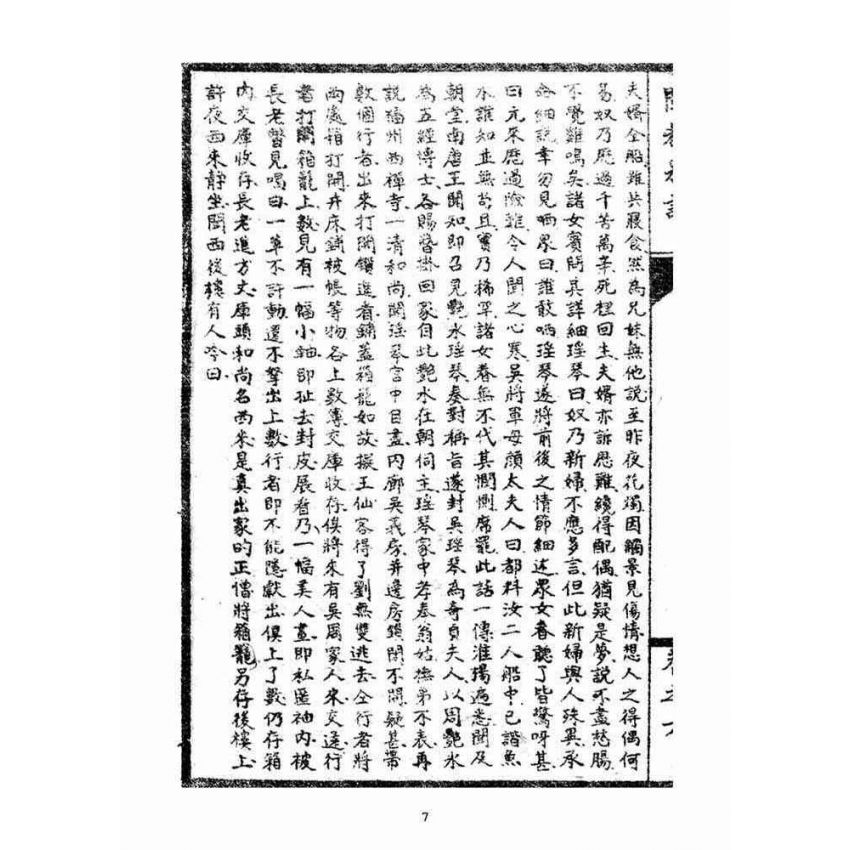 夫婿仝船雖共寢食然為兄妹無他說至昨夜花燭因觸景見傷情想人之得偶何
易奴乃歷過千苦萬辛死裡回生夫婿亦訴歷難繞得配偶猶疑是夢說不盡愁腸
不覺雞鳴矣諸女賓問其詳細瑤琴曰奴乃新婦不應多言但此新婦與人殊異承
命細說幸勿見哂眾曰誰敢哂瑤琴遂將前後之情節細述眾女眷聽了皆驚呀甚
曰元來歷過險難令人聞之心寒吳將軍母顏太夫人曰都料汝二人船中已諧魚
水誰知並無苟且實乃稀罕諸女眷無不代其憫惻席罷此話一傳淮揚遍悉聞及
朝堂南唐王聞知即召見艷水瑤琴奏對稱旨遂封吳瑤琴為奇貞夫人以周艷水
為五經博士各賜誥掛回家自此艷水在朝伺主瑤琴家中孝奉翁姑撫弟不表再
說福州西禪寺一清和尚聞瑤琴言中目盡內廊吳義房并邊房鎖閉不開疑甚帶
數個行者出來打開鎖進看鋪蓋箱籠如故擬王仙客得了劉無雙逃去仝行者將
兩處箱打開弁床鋪被帳等物各上數簿交庫收存俟將來有吳周家人來交逐行
者打開箱籠上數見有一幅小軸即扯去封皮展看乃一幅美人畫即私匿袖內被
長老瞥見喝曰一草不許動還不拏出上數行者即不能隱獻出俱上了數仍存箱
內交庫收存長老進方丈庫頭和尚名西來是真出家的正僧將箱籠另存後樓上
許夜西來靜坐聞西後樓有人吟曰
卷之六
7